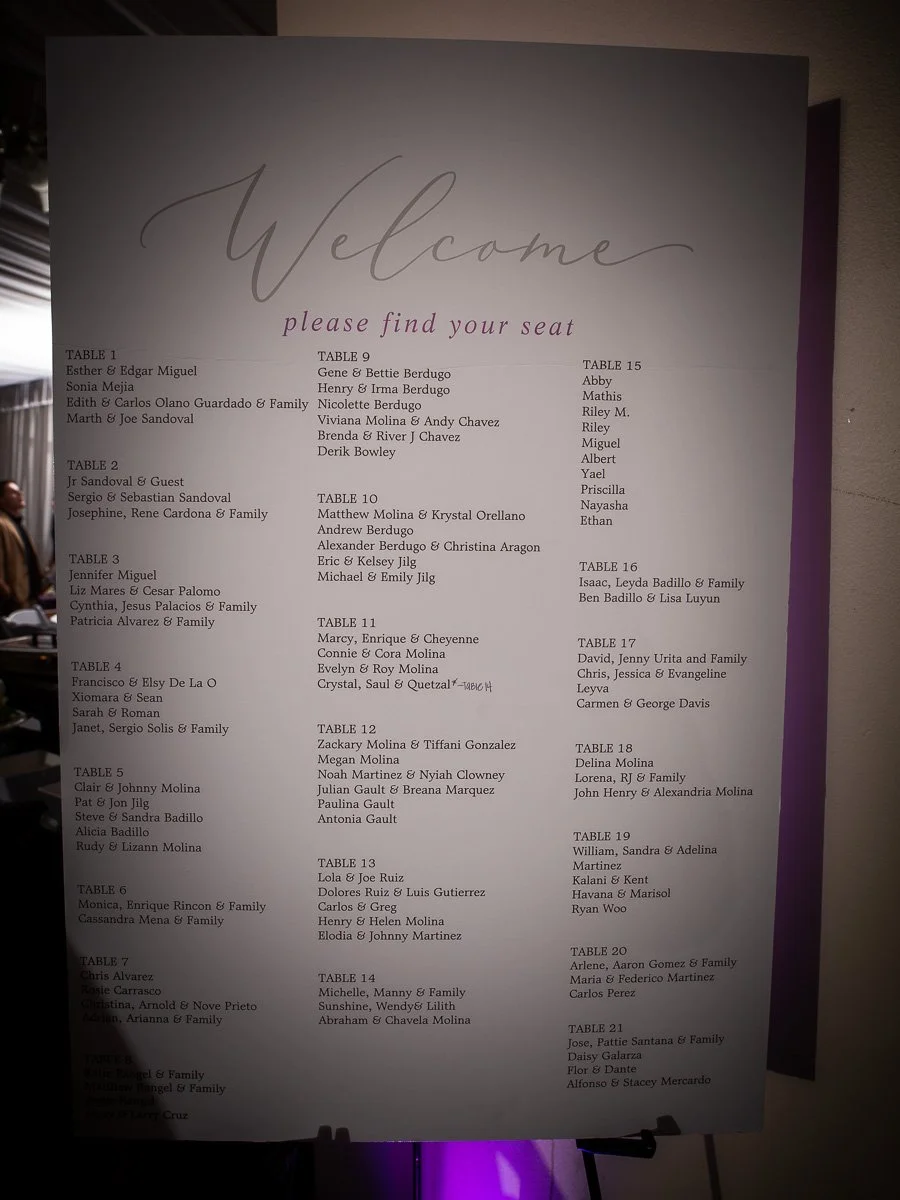 Welcome
please find your seat
TABLE 1
Esther & Edgar Miguel
Sonia Mejia
Edith & Carlos Olano Guardado & Family
Marth & Joe Sandoval
TABLE 2
Jr Sandoval & Guest
Sergio & Sebastian Sandoval
Josephine, Rene Cardona & Family
TABLE 3
Jennifer Miguel
Liz Mares & Cesar Palomo
Cynthia, Jesus Palacios & Family
Patricia Alvarez & Family
TABLE 4
Francisco & Elsy De La O
Xiomara & Sean
Sarah & Roman
Janet, Sergio Solis & Family
TABLE 5
Clair & Johnny Molina
Pat & Jon Jilg
Steve & Sandra Badillo
Alicia Badillo
Rudy & Lizann Molina
TABLE 6
Monica, Enrique Rincon & Family
Cassandra Mena & Family
TABLE 7
Chris Alvarez
Rosie Carrasco
Christina, Arnold & Nove Prieto
Adrian, Arianna & Family
TABLE 8
Rangel & Family
Matthew Rangel & Family
& Larry Cruz
TABLE 9
Gene & Bettie Berdugo
Henry & Irma Berdugo
Nicolette Berdugo
Viviana Molina & Andy Chavez
Brenda & River J Chavez
Derik Bowley
TABLE 10
Matthew Molina & Krystal Orellano
Andrew Berdugo
Alexander Berdugo & Christina Aragon
Eric & Kelsey Jilg
Michael & Emily Jilg
TABLE 11
Marcy, Enrique & Cheyenne
Connie & Cora Molina
Evelyn & Roy Molina
Crystal, Saul & Quetzal*-TABLE 14
TABLE 12
Zackary Molina & Tiffani Gonzalez
Megan Molina
Noah Martinez & Nyiah Clowney
Julian Gault & Breana Marquez
Paulina Gault
Antonia Gault
TABLE 13
Lola & Joe Ruiz
Dolores Ruiz & Luis Gutierrez
Carlos & Greg
Henry & Helen Molina
Elodia & Johnny Martinez
TABLE 14
Michelle, Manny & Family
Sunshine, Wendy& Lilith
Abraham & Chavela Molina
TABLE 15
Abby
Mathis
Riley M.
Riley
Miguel
Albert
Yael
Priscilla
Nayasha
Ethan
TABLE 16
Isaac, Leyda Badillo & Family
Ben Badillo & Lisa Luyun
TABLE 17
David, Jenny Urita and Family
Chris, Jessica & Evangeline
Leyva
Carmen & George Davis
TABLE 18
Delina Molina
Lorena, RJ & Family
John Henry & Alexandria Molina
TABLE 19
William, Sandra & Adelina
Martinez
Kalani & Kent
Havana & Marisol
Ryan Woo
TABLE 20
Arlene, Aaron Gomez & Family
Maria & Federico Martinez
Carlos Perez
TABLE 21
Jose, Pattie Santana & Family
Daisy Galarza
Flor & Dante
Alfonso & Stacey Mercardo